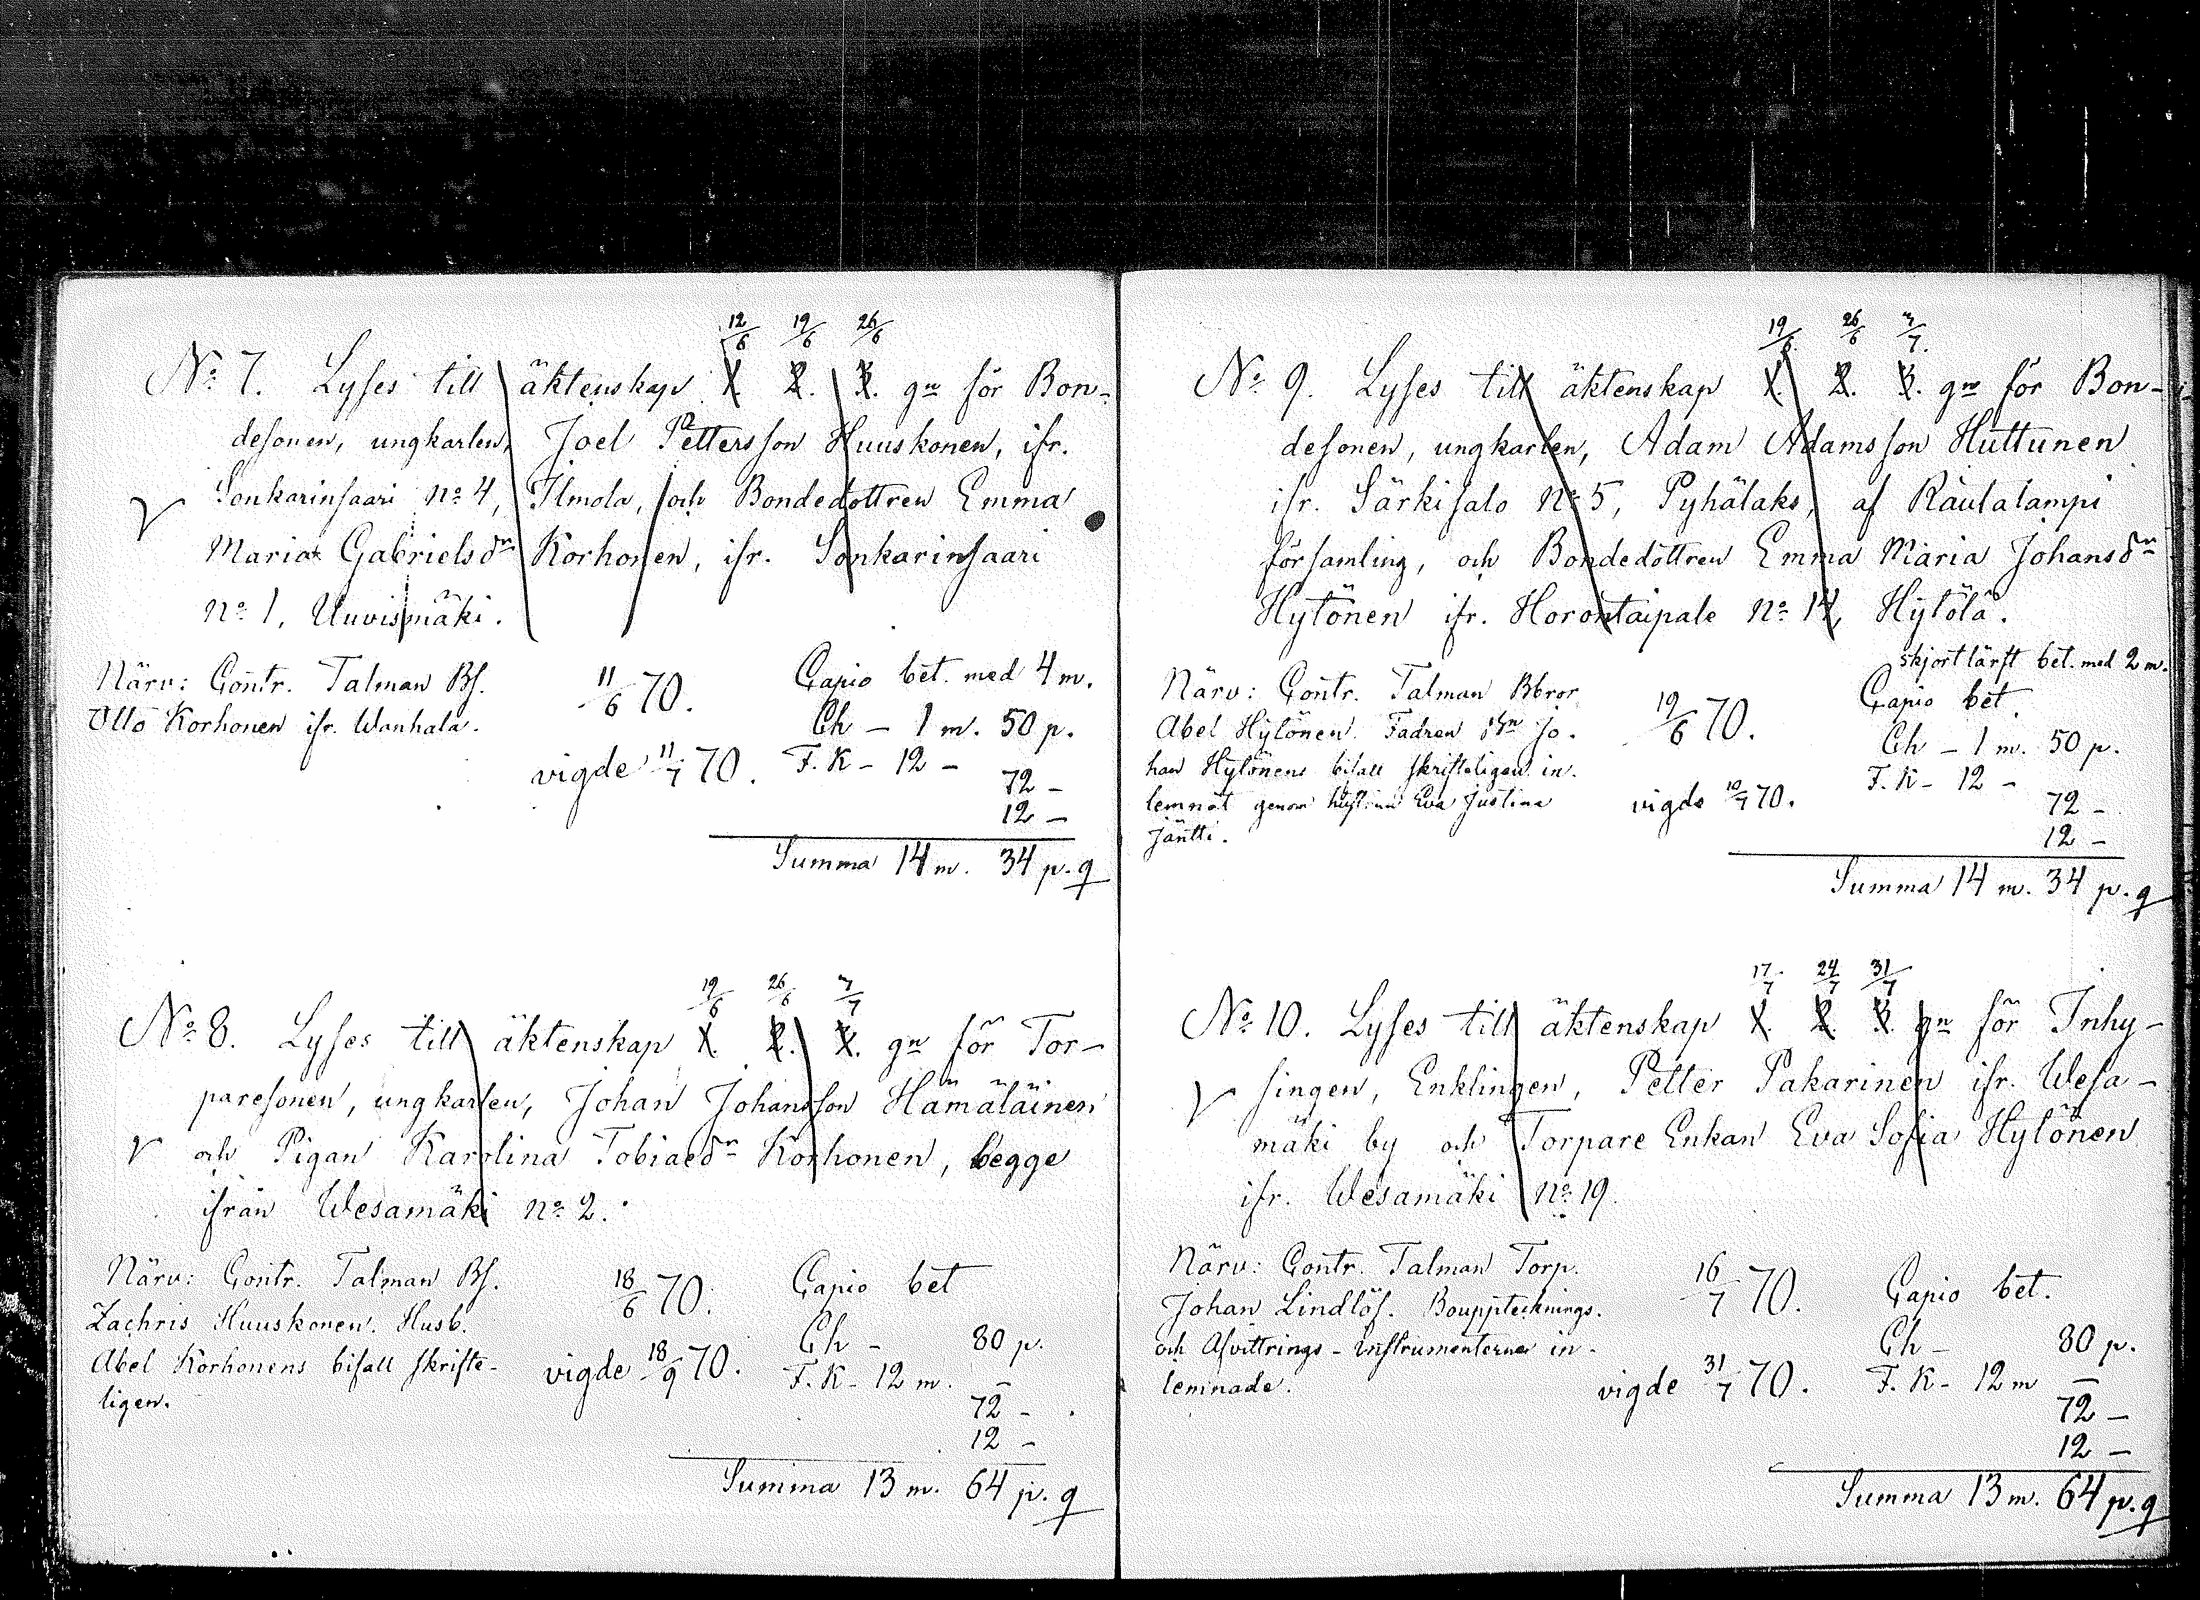 12/6 19/6 26/6
No 7. Lyses till äktenskap 1. 2. 3. gn för Bon-
desonen, ungkarlen, Joel Pettersson Huuskonen, ifr.
Sonkarinsaari no 4, Ilmola, och Bondedottren Emma
Maria Gabrielsdr Korhonen, ifr. Sonkarinsaari
no 1, Uuvismäki.
Närv: Contr. Talman Bs.
Otto Korhonen ifr. Wanhala.
11/6 70.
vigde 11/7 70.
Capio bet. med 4 m.
Ch – 1 m. 50 p.
F. K – 12 –
72 –
12 –
Summa 14 m. 34 p. q
19/6 26/6 3/7
No 8. Lyses till äktenskap 1. 2. 3. gn för Tor-
paresonen, ungkarlen, Johan Johansson Hämäläinen
och Pigan Karolina Tobiaedr Korhonen, begge
ifrån Wesamäki no 2.
Närv: Contr. Talman Bs.
Zachris Huuskonen. Husb.
Abel Korhonens bifall skrifte-
ligen.
18/6 70.
vigde 18/9 70.
Capio bet
Ch – 80 p.
F. K – 12 m. –
72 –
12 –
Summa 13 m. 64 p. q
19/6. 26/6 3/7.
No 9. Lyses till äktenskap 1. 2. 3. gn för Bon-
desonen, ungkarlen, Adam Adamsson Huttunen
ifr. Särkisalo No 5, Pyhälaks, af Rautalampi
församling, och Bondedottren Emma Maria Johansdr
Hytönen ifr. Horontaipale no 14, Hytölä.
Närv: Contr. Talman Bbror
Abel Hytönen. Fadren Jo.
han Hytönens bifall skrifteligen in.
lemnat genom hustrun Eva Justina
Jäntti.
19/6 70.
vigde 10/7 70.
skjortlärft bet. med 2 m.
Capio bet.
Ch – 1 m. 50 p.
F. K – 12 –
72 –
12 –
Summa 14 m. 34 p. q
17/7 24/7 31/7
No 10. Lyses till äktenskap 1. 2. 3. gn för Inhy-
singen, Enklingen, Petter Pakarinen ifr. Wesa-
mäki by och Torpare Enkan Eva Sofia Hytönen
ifr. Wesamäki no 19.
Närv: Contr. Talman Torp.
Johan Lindlöf. Boupptecknings.
och Afvittrings-Instrumenterna in-
lemnade.
16/7 70.
vigde 31/7 70.
Capio bet.
Ch – 80 p.
F. K – 12 m –
72 –
12 –
Summa 13 m. 64 p. q